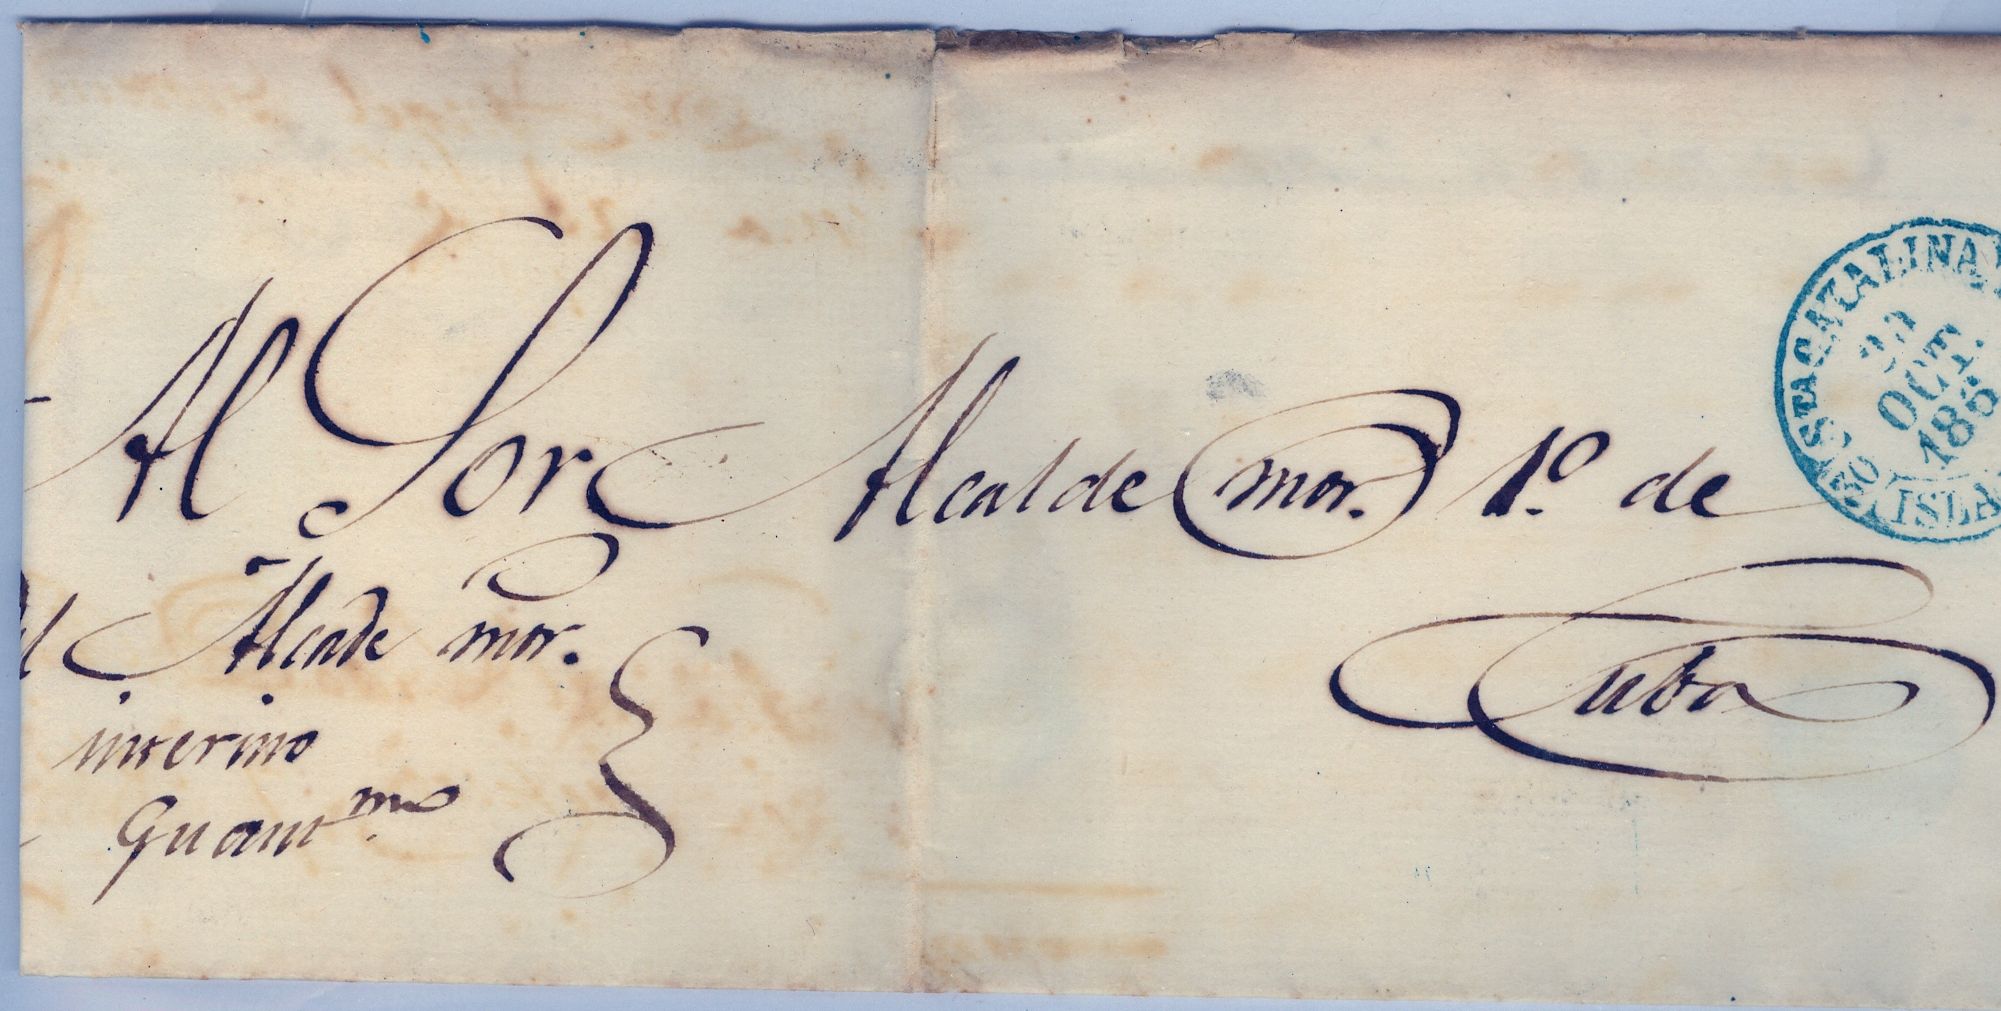 Al Sor Alcalde mor. 1º. de
Cuba
el Alcade mor.
interino
Guantmo.
STA CATALINA
OCT.
185
ISLA